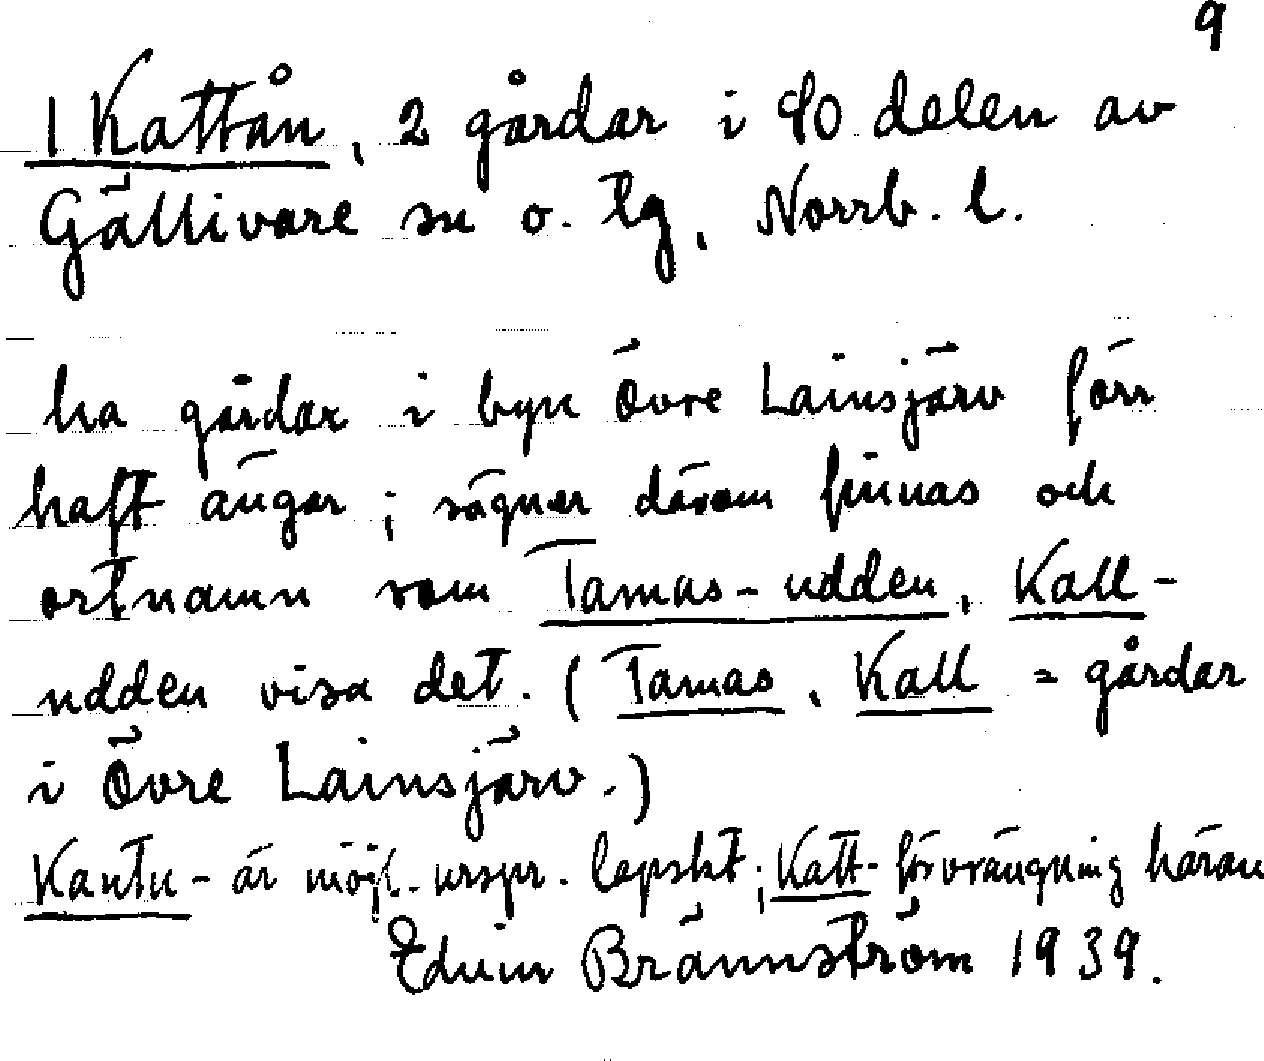 9
1 Kattån, 2 gårdar i SO delen av
Gällivare sn o. tg, Norrb. l.
ha gårdar i byn Övre Lainsjärv förr
haft ängar; sägner därom finnas och
ortnamn som Tamas-udden, Kall-
udden visa det. (Tamas, Kall = gårdar
i Övre Lainsjärv.)
Kantu- är möjl. urspr. lapskt; Katt- förvrängning härav
Edvin Brännström 1939.